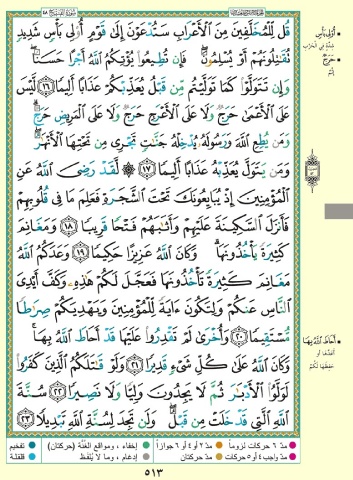 سورة الفتح ٤٨
قُل لِّلْمُخَلَّفِينَ مِنَ الْأَعْرَابِ سَتُدْعَوْنَ إِلَىٰ قَوْمٍ أُوْلِي بَأْسٍ شَدِيدٍ
تُقَاتِلُونَهُمْ أَوْ يُسْلِمُونَ ۖ فَإِن تُطِيعُوا يُؤْتِكُمُ اللَّهُ أَجْرًا حَسَنًا ۖ
وَإِن تَتَوَلَّوْا كَمَا تَوَلَّيْتُم مِّن قَبْلُ يُعَذِّبْكُمْ عَذَابًا أَلِيمًا ﴿١٦﴾ لَّيْسَ
عَلَى الْأَعْمَىٰ حَرَجٌ وَلَا عَلَى الْأَعْرَجِ حَرَجٌ وَلَا عَلَى الْمَرِيضِ حَرَجٌ ۗ
وَمَن يُطِعِ اللَّهَ وَرَسُولَهُ يُدْخِلْهُ جَنَّاتٍ تَجْرِي مِن تَحْتِهَا الْأَنْهَارُ ۖ
وَمَن يَتَوَلَّ يُعَذِّبْهُ عَذَابًا أَلِيمًا ﴿١٧﴾ ۞ لَّقَدْ رَضِيَ اللَّهُ عَنِ
الْمُؤْمِنِينَ إِذْ يُبَايِعُونَكَ تَحْتَ الشَّجَرَةِ فَعَلِمَ مَا فِي قُلُوبِهِمْ
فَأَنزَلَ السَّكِينَةَ عَلَيْهِمْ وَأَثَابَهُمْ فَتْحًا قَرِيبًا ﴿١٨﴾ وَمَغَانِمَ
كَثِيرَةً يَأْخُذُونَهَا ۗ وَكَانَ اللَّهُ عَزِيزًا حَكِيمًا ﴿١٩﴾ وَعَدَكُمُ اللَّهُ
مَغَانِمَ كَثِيرَةً تَأْخُذُونَهَا فَعَجَّلَ لَكُمْ هَٰذِهِ وَكَفَّ أَيْدِيَ
النَّاسِ عَنكُمْ وَلِتَكُونَ ءَايَةً لِّلْمُؤْمِنِينَ وَيَهْدِيَكُمْ صِرَاطًا
مُّسْتَقِيمًا ﴿٢٠﴾ وَأُخْرَىٰ لَمْ تَقْدِرُوا عَلَيْهَا قَدْ أَحَاطَ اللَّهُ بِهَا ۚ
وَكَانَ اللَّهُ عَلَىٰ كُلِّ شَيْءٍ قَدِيرًا ﴿٢١﴾ وَلَوْ قَاتَلَكُمُ الَّذِينَ كَفَرُوا
لَوَلَّوُا الْأَدْبَارَ ثُمَّ لَا يَجِدُونَ وَلِيًّا وَلَا نَصِيرًا ﴿٢٢﴾ سُنَّةَ
اللَّهِ الَّتِي قَدْ خَلَتْ مِن قَبْلُ ۖ وَلَن تَجِدَ لِسُنَّةِ اللَّهِ تَبْدِيلًا ﴿٢٣﴾
أُولِي بَأْسٍ
حَرَجٌ
إثم
أَحَاطَ اللَّهُ بِهَا
مدّ ٦ حركات لزوماً مدّ ٢ أو ٤ أو ٦ جوازاً إخفاء، ومواقع الغُنَّة (حركتان) تفخيم
مدّ واجب ٤ أو ٥ حركات مدّ حركتان إدغام، وما لا يُلفَظ قلقلة
٥١٣